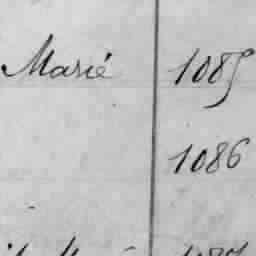 Marié 1085
1086